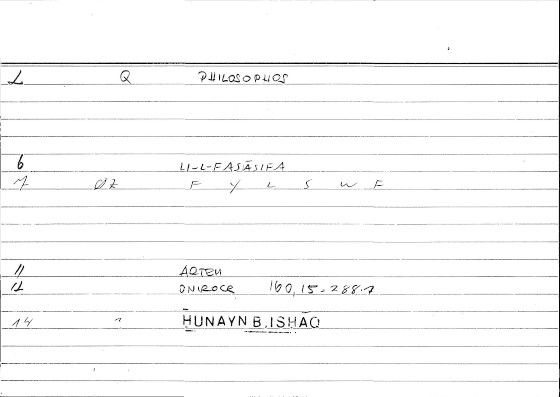 1 Q PHILOSOPHOS
6 LI-L-FASĀSIFA
7 02 F Y L S W F
11 ARTEM
12 ONIROCR 160,15-288.1
14 " HUNAYN B.ISHĀQ